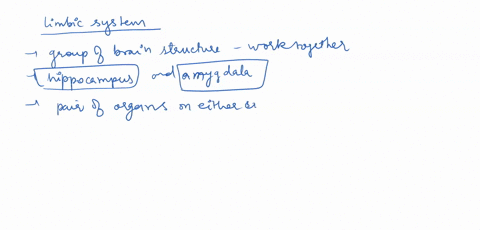 limbic system
→ group of brain structure - work together
→ hippocampus and amygdala
→ pair of organs on either